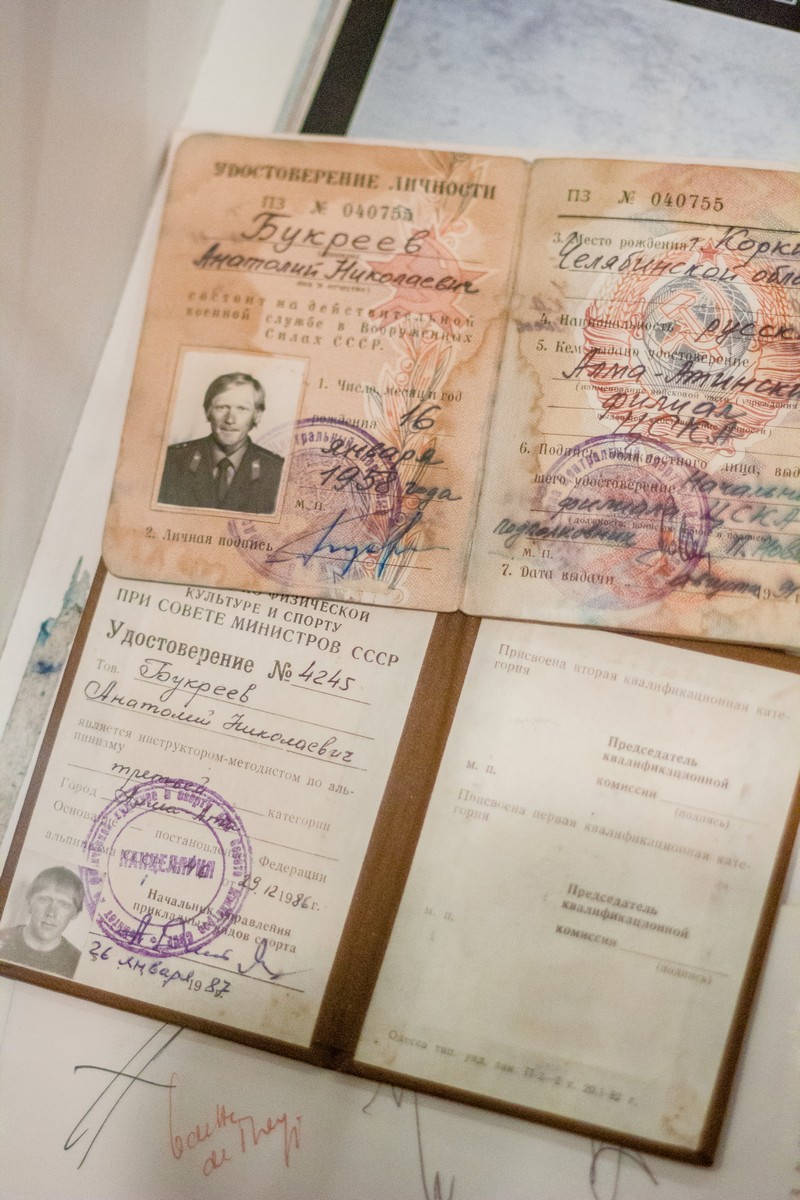 УДОСТОВЕРЕНИЕ ЛИЧНОСТИ
ПЗ № 040755
Букреев
Анатолий Николаевич
состоит на действительной
военной службе в Вооруженных
Силах СССР.
1. Число, месяц и год
рождения 16
января
1958 года
М. П.
2. Личная подпись
ПЗ № 040755
3. Место рождения г. Корки
Челябинской обла
4. Национальность русск
5. Кем выдано удостоверение
Алма-Атински
филиал
ЦСКА
6. Подпись должностного лица, выд
шего удостоверение Начальни
филиала ЦСКА
подполковник
М. П.
7. Дата выдачи августа
КУЛЬТУРЕ И СПОРТУ
ПРИ СОВЕТЕ МИНИСТРОВ СССР
Удостоверение № 4245
Тов. Букреев
Анатолий Николаевич
является инструктором-методистом по аль-
пинизму
третьей категории
Город Алма-Ата
Основание постановление Федерации
альпинизма от 29.12.1986 г.
КАНЦЕЛЯРИЯ
Начальник управления
прикладных видов спорта
26 января 1987
Присвоена вторая квалификационная кате-
гория
Председатель
квалификационной
м. п. комиссии
(подпись)
Присвоена первая квалификационная кате-
гория
Председатель
квалификационной
м. п. комиссии
(подпись)